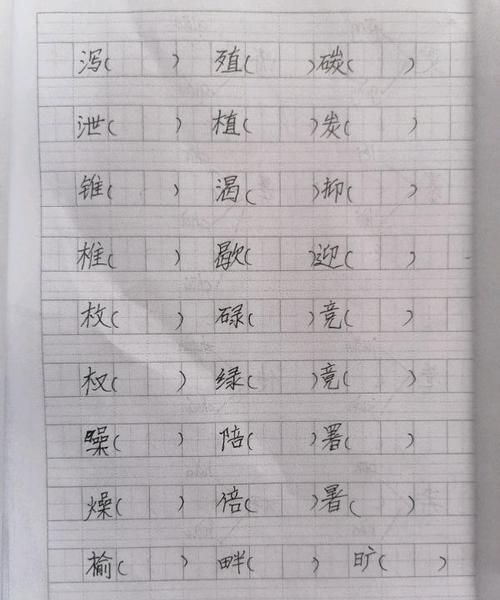 泻(    ) 殖(    ) 碳(    )
泄(    ) 植(    ) 炭(    )
锥(    ) 渴(    ) 抑(    )
椎(    ) 歇(    ) 迎(    )
枚(    ) 碌(    ) 竞(    )
权(    ) 绿(    ) 竟(    )
噪(    ) 陪(    ) 署(    )
燥(    ) 倍(    ) 暑(    )
榆(    ) 畔(    ) 旷(    )